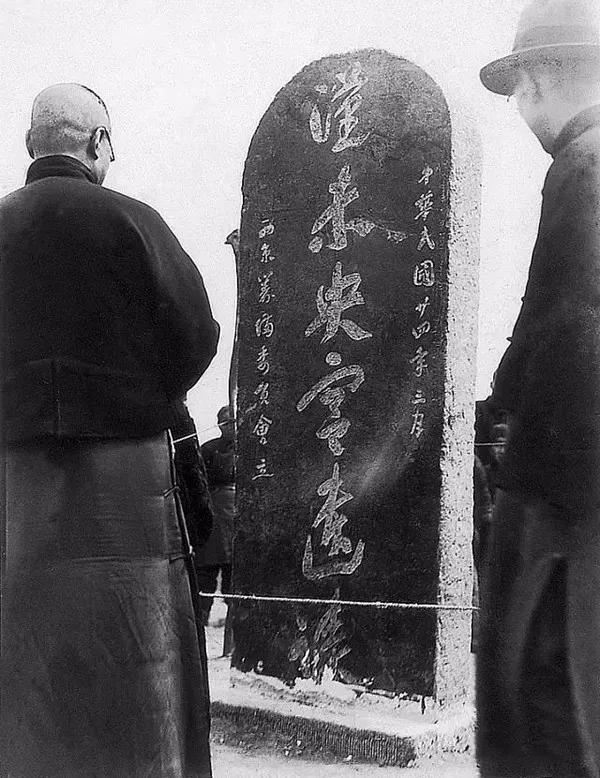 中華民國廿四年三月
漢未央宮遺
西京籌備委員會立